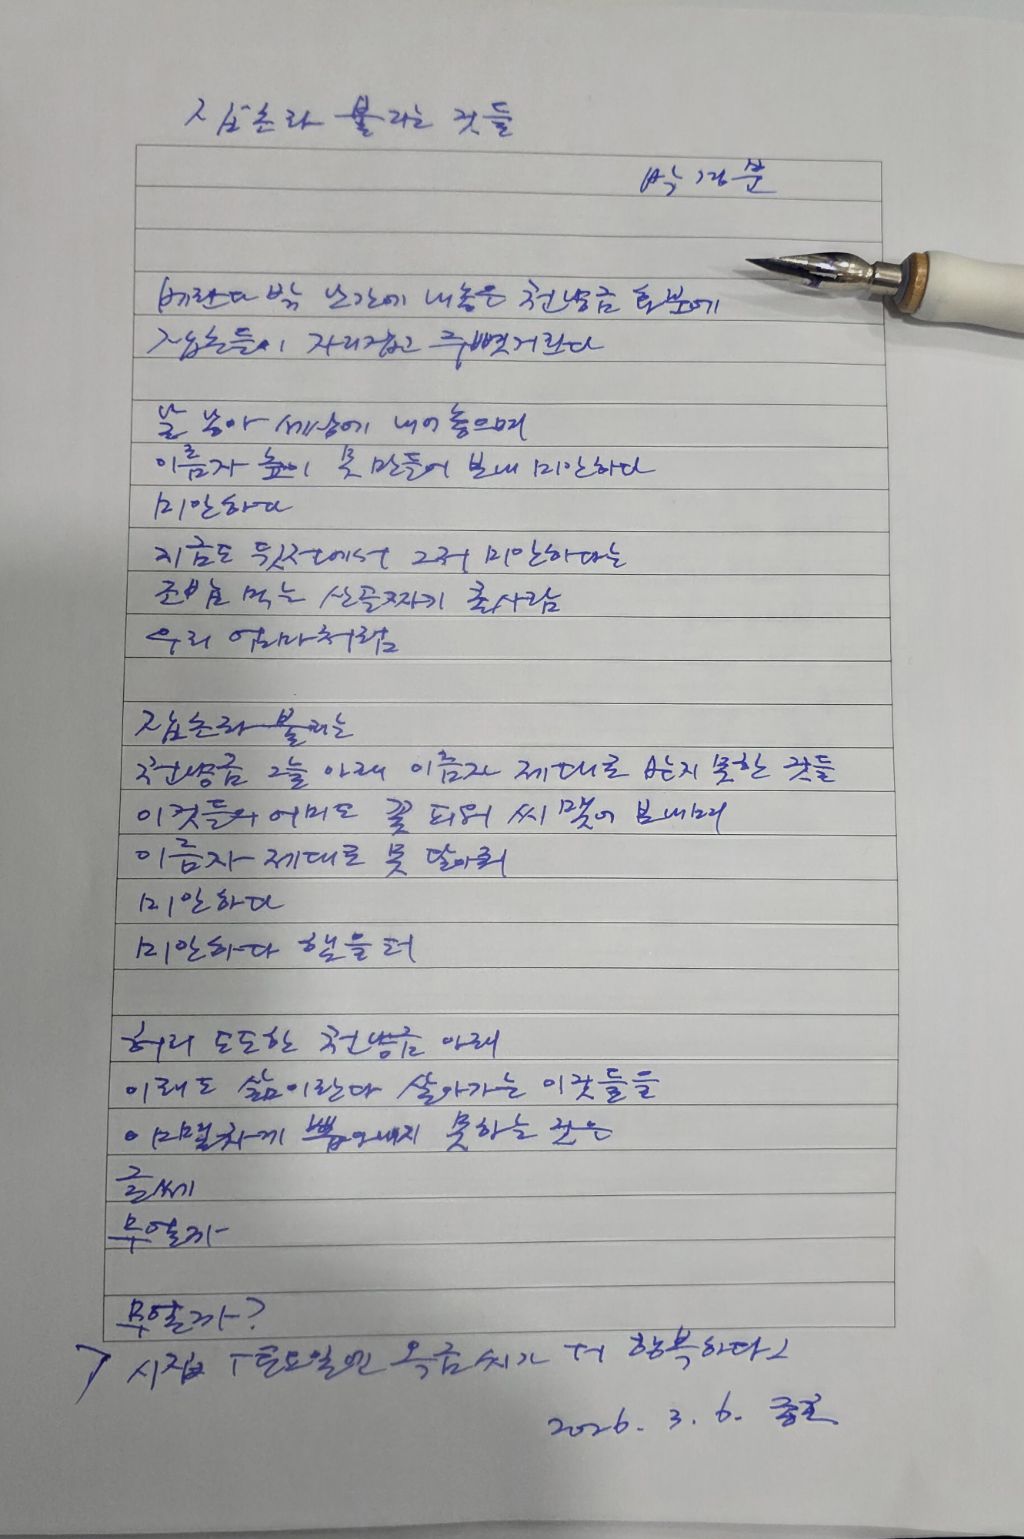 잡초라 불리는 것들
박경분
베란다 밖 난간에 내놓은 천냥금 화분에
잡초들이 자리잡고 주뼛거린다
날 낳아 세상에 내어놓으며
이름자 높이 못 만들어 보내 미안하다
미안하다
지금도 뒷전에서 그저 미안하다는
눈밥 먹는 산골짜기 촌사람
우리 엄마처럼
잡초라 불리는
천냥금 그늘 아래 이름자 제대로 받지 못한 것들
이것들의 어미도 꽃 피워 씨 맺어 보내며
이름자 제대로 못 달아줘
미안하다
미안하다 했을 터
허리 도도한 천냥금 아래
이래도 삶이란다 살아가는 이것들을
야멸차게 뽑아내지 못하는 것은
글쎄
무얼까
무얼까?
시집 「토요일엔 옥금씨가 더 행복하다」
2026. 3. 6.